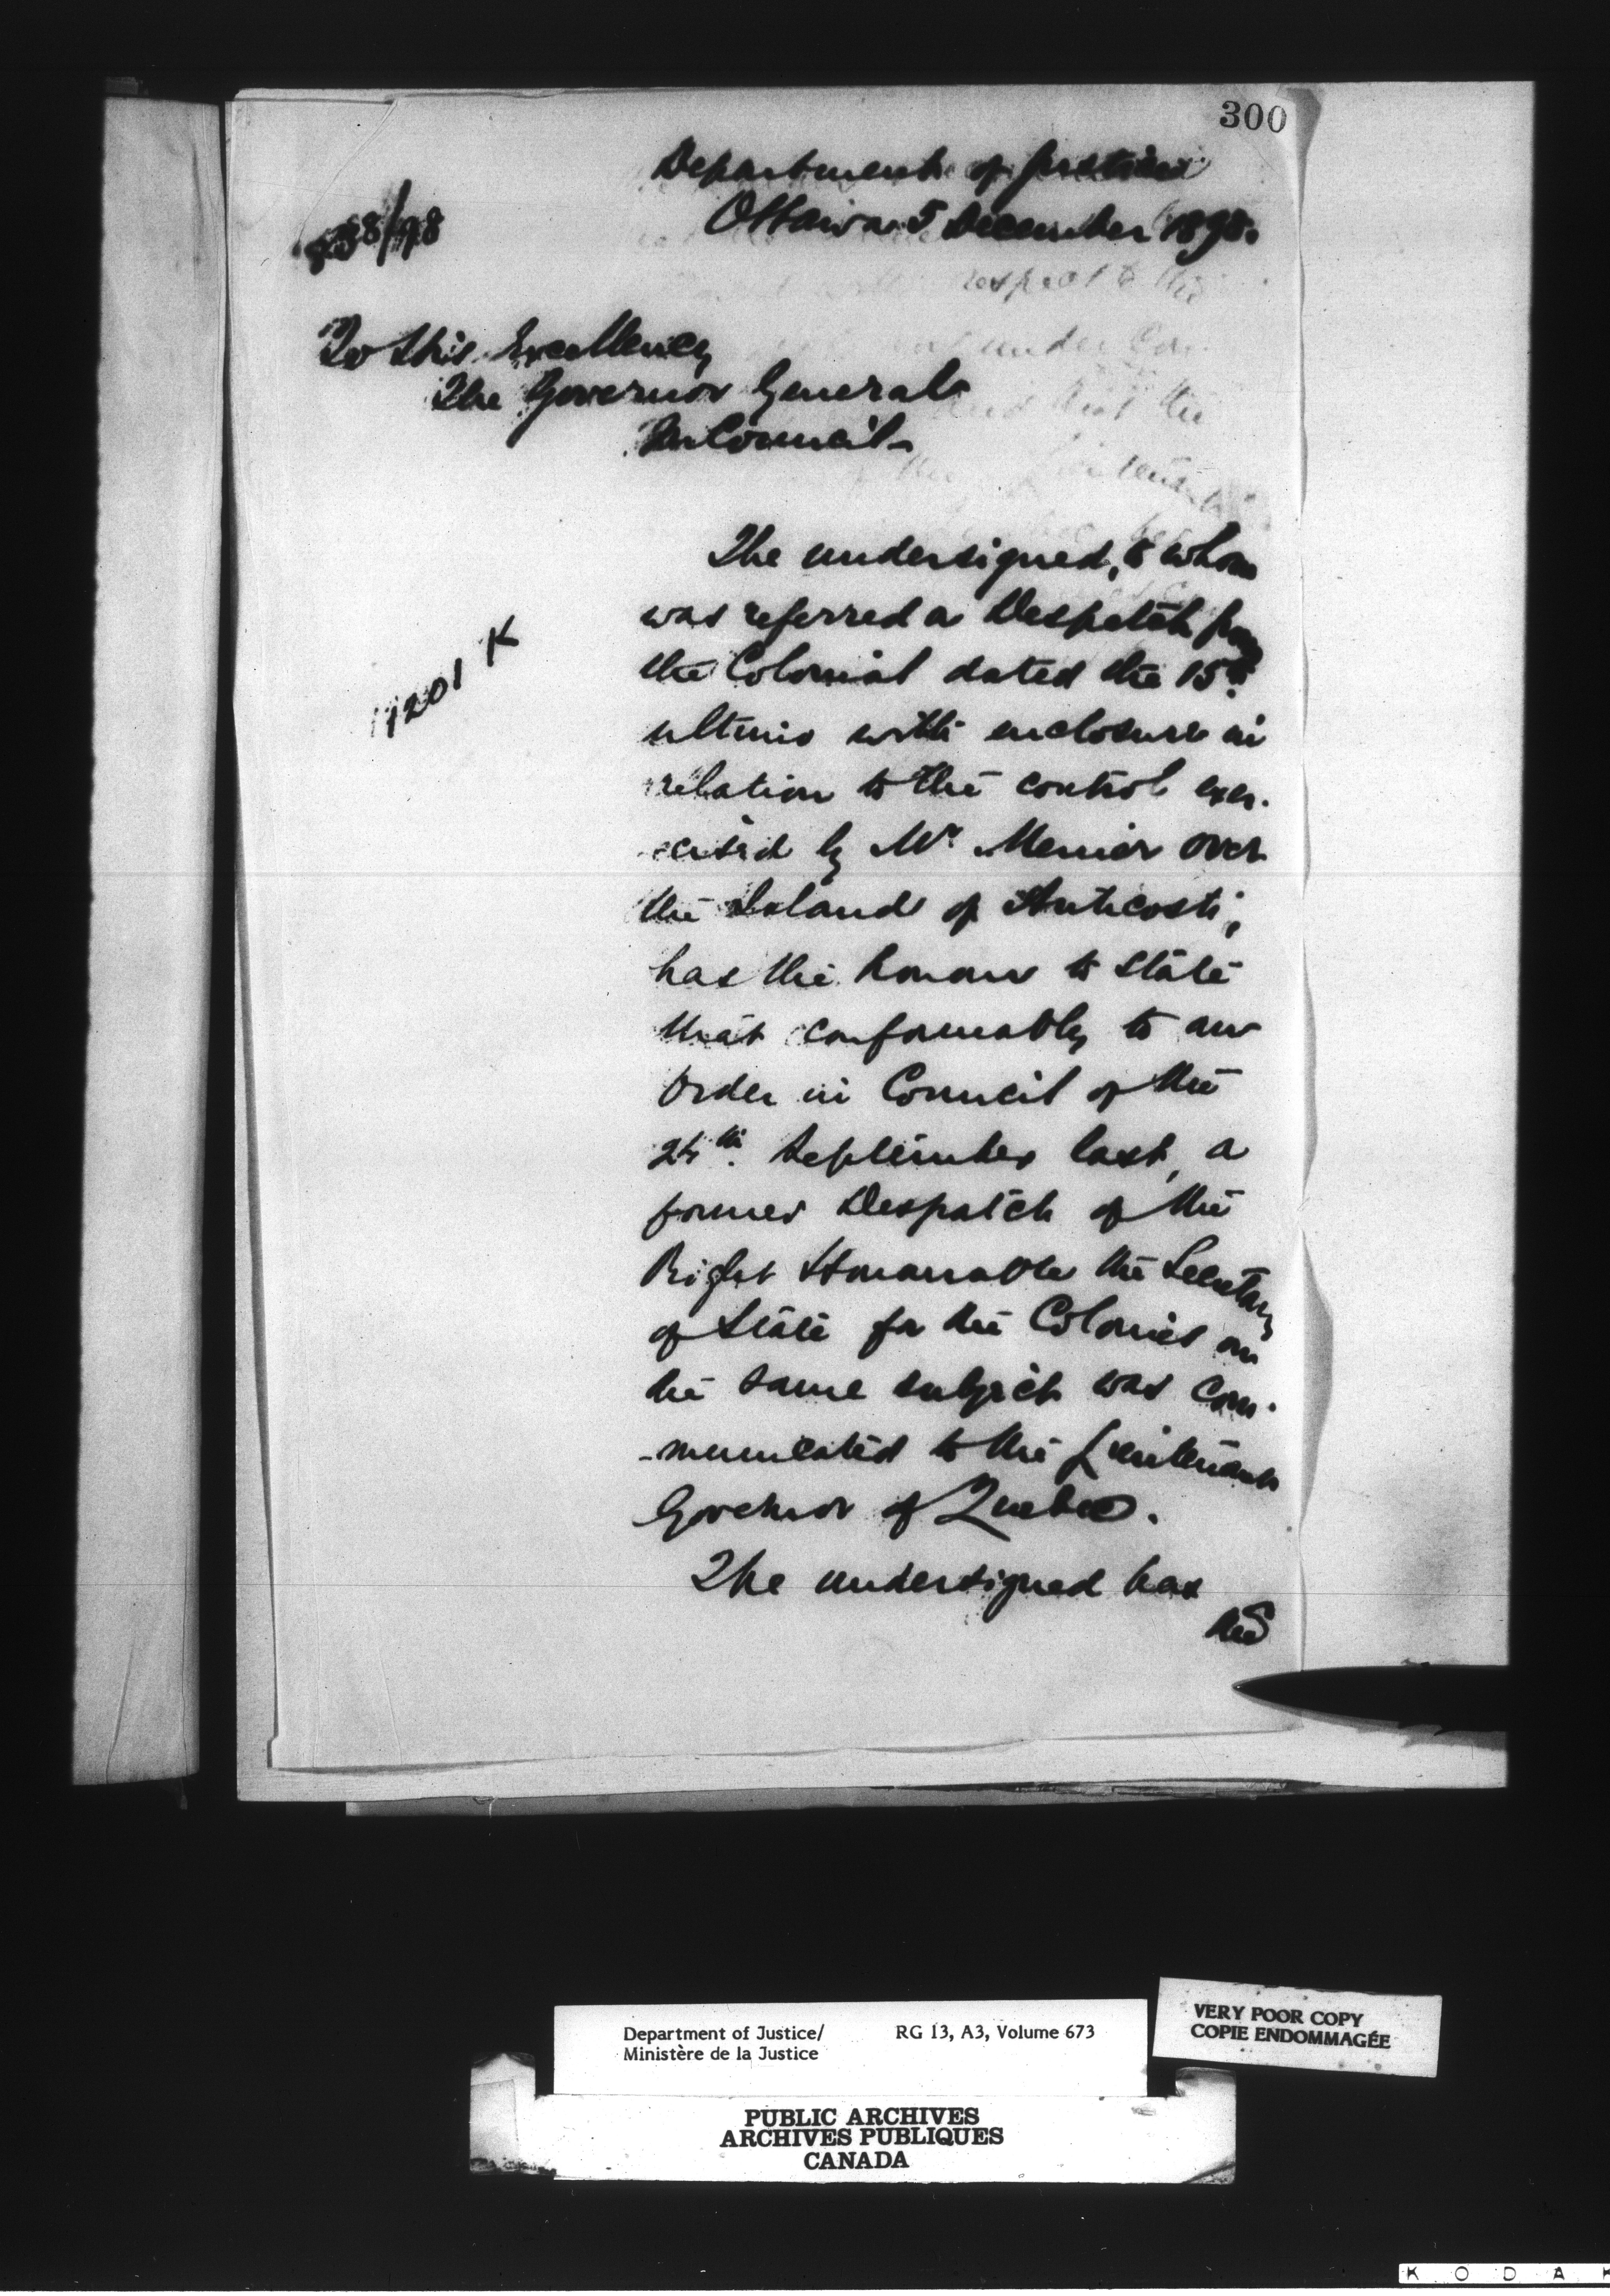 300
Department of Justice
Ottawa 5 December 1898.
838/98
To His Excellency
The Governor General
In Council
1201 K
The undersigned, to whom
was referred a Despatch from
the Colonial dated the 15th
ultimo with enclosure in
relation to the control exer-
-cised by Mr Menier over
the Island of Anticosti,
has the honour to state
that conformably to an
Order in Council of the
24th September last, a
former Despatch of the
Right Honourable the Secretary
of State for the Colonies on
the same subject was com-
-municated to the Lieutenant
Governor of Quebec.
The undersigned has
the
Department of Justice/
Ministère de la Justice
RG 13, A3, Volume 673
VERY POOR COPY
COPIE ENDOMMAGÉE
PUBLIC ARCHIVES
ARCHIVES PUBLIQUES
CANADA
KODAK